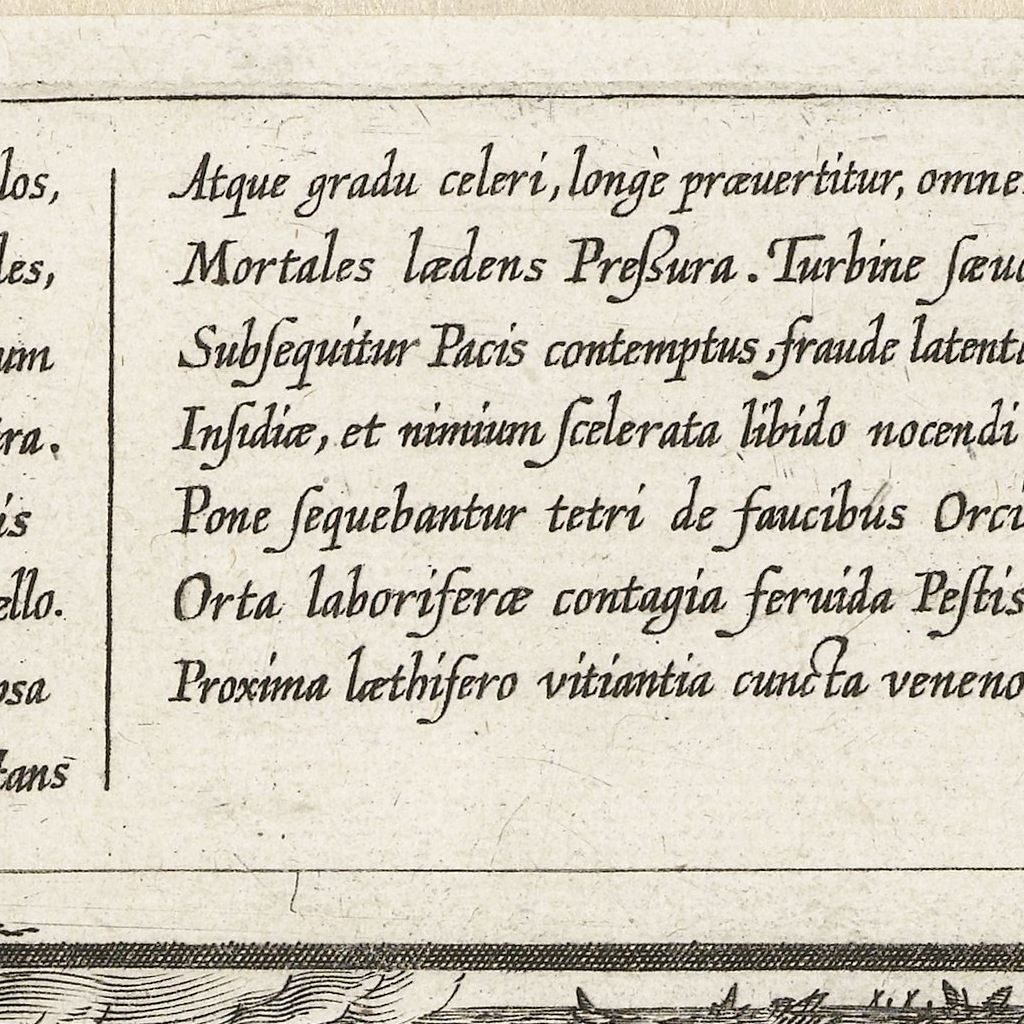 los,
les,
um
ra.
is
ello.
osa
tans
Atque gradu celeri, longè præuertitur, omne
Mortales lædens Preßura. Turbine ſæu
Subſequitur Pacis contemptus, fraude latent
Inſidiæ, et nimium ſcelerata libido nocendi
Pone ſequebantur tetri de faucibus Orci
Orta laboriferæ contagia feruida Peſtis
Proxima læthifero vitiantia cuncta veneno